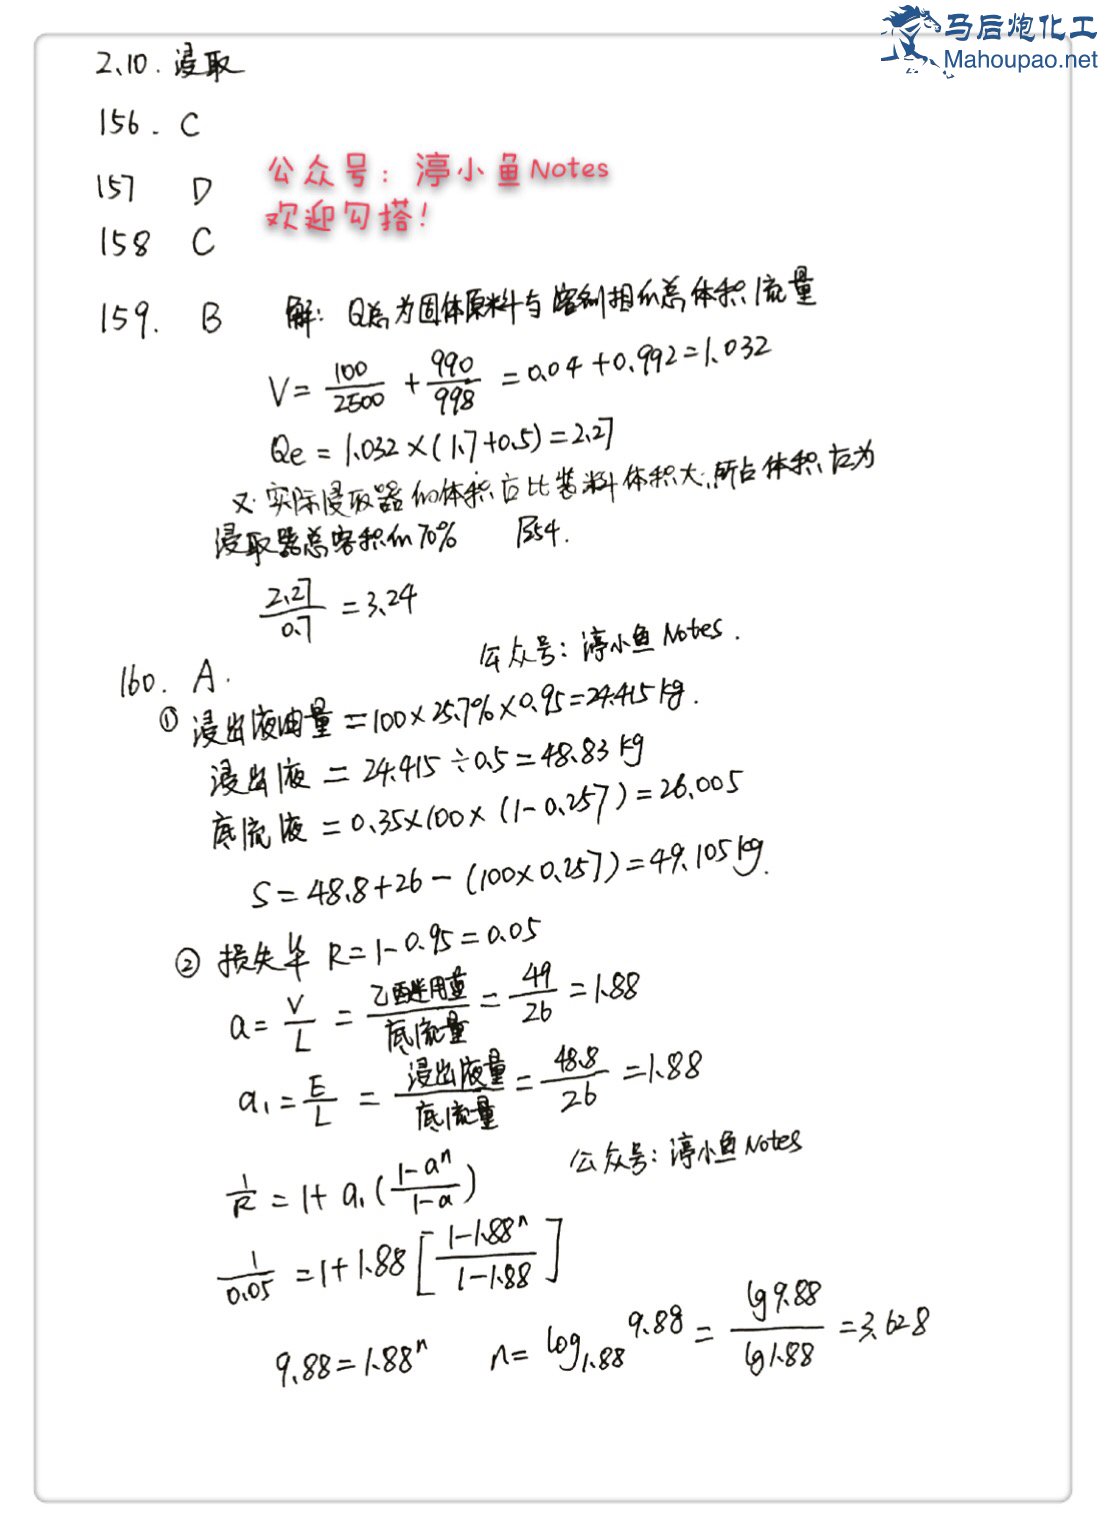 马后炮化工
Mahoupao.net
2.10. 浸取
156. C
公众号：渟小鱼Notes
157 D
欢迎勾搭！
158 C
159. B 解：Q总为固体原料与溶剂相的总体积流量
V = 100/2500 + 990/998 = 0.04 + 0.992 = 1.032
Qe = 1.032 × (1.7+0.5) = 2.27
又∵实际浸取器的体积应比装料体积大，所占体积应为
浸取器总容积的70% P54.
2.27/0.7 = 3.24
公众号：渟小鱼Notes.
160. A.
① 浸出液油量 = 100 × 25.7% × 0.95 = 24.415 kg.
浸出液 = 24.415 ÷ 0.5 = 48.83 kg
底流液 = 0.35×100× (1-0.257) = 26.005
S = 48.8 + 26 - (100×0.257) = 49.105 kg.
② 损失率 R = 1-0.95 = 0.05
a = V/L = 乙醚用量/底流量 = 49/26 = 1.88
a₁ = E/L = 浸出液量/底流量 = 48.8/26 = 1.88
公众号：渟小鱼Notes
1/R = 1+ a₁ (1-aⁿ/1-a)
1/0.05 = 1+1.88 [1-1.88ⁿ/1-1.88]
9.88 = 1.88ⁿ n = log₁.₈₈ 9.88 = lg9.88/lg1.88 = 3.628